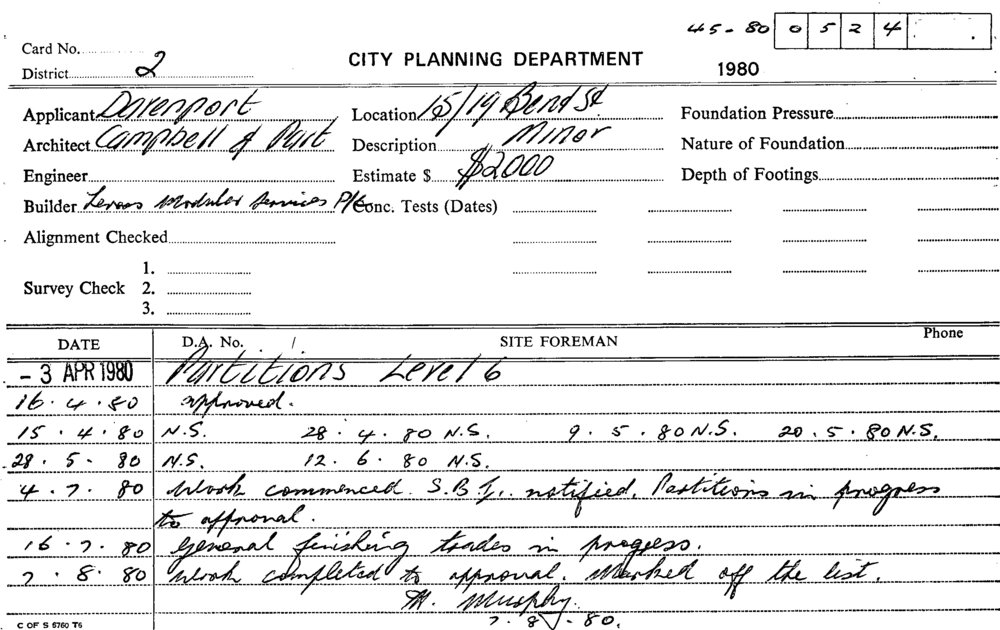 45-80 0 5 2 4
Card No.
District 2
CITY PLANNING DEPARTMENT
1980
Applicant Davenport
Location 15/19 Bond St
Foundation Pressure
Architect Campbell &
Description Minor
Nature of Foundation
Engineer
Estimate $ $2000
Depth of Footings
Builder Modular Services P/L
Conc. Tests (Dates)
Alignment Checked
1.
Survey Check 2.
3.
DATE D.A. No. SITE FOREMAN Phone
- 3 APR 1980 Partitions Level 6
16.4.80 approved.
15.4.80 N.S. 28.4.80 N.S. 9.5.80 N.S. 20.5.80 N.S.
28.5.80 N.S. 12.6.80 N.S.
4.7.80 Work commenced. S.B.I. notified. Partitions in progress
to approval.
16.7.80 General finishing trades in progess.
7.8.80 Work completed to approval. Marked off the list.
Murphy.
7.8.80.
C OF S 6760 T6